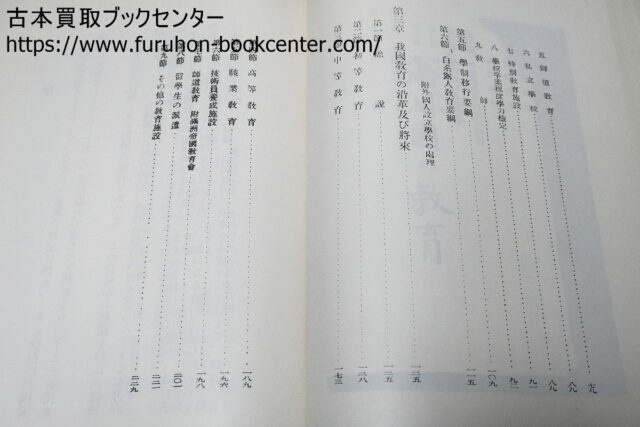 古本買取ブックセンター
https://www.furuhon-bookcenter.com/
五 師道教育 七九
六 私立學校 八九
七 特別教育施設 九一
八 學校卒業程度學力檢定 九二
九 教師 一〇九
第五節 學制移行要綱
第六節 白系露人教育要綱 一一五
附外國人設立學校の處理
第三章 我國教育の沿革及び將來 一二五
說 一二五
初等教育 一二八
中等教育 一七三
高等教育 一八九
職業教育 一九六
技術員養成施設 一九八
師道教育 附滿洲帝國教育會 二〇一
留學生の派遣 二二一
第九節 その他の教育施設 二二九
教育